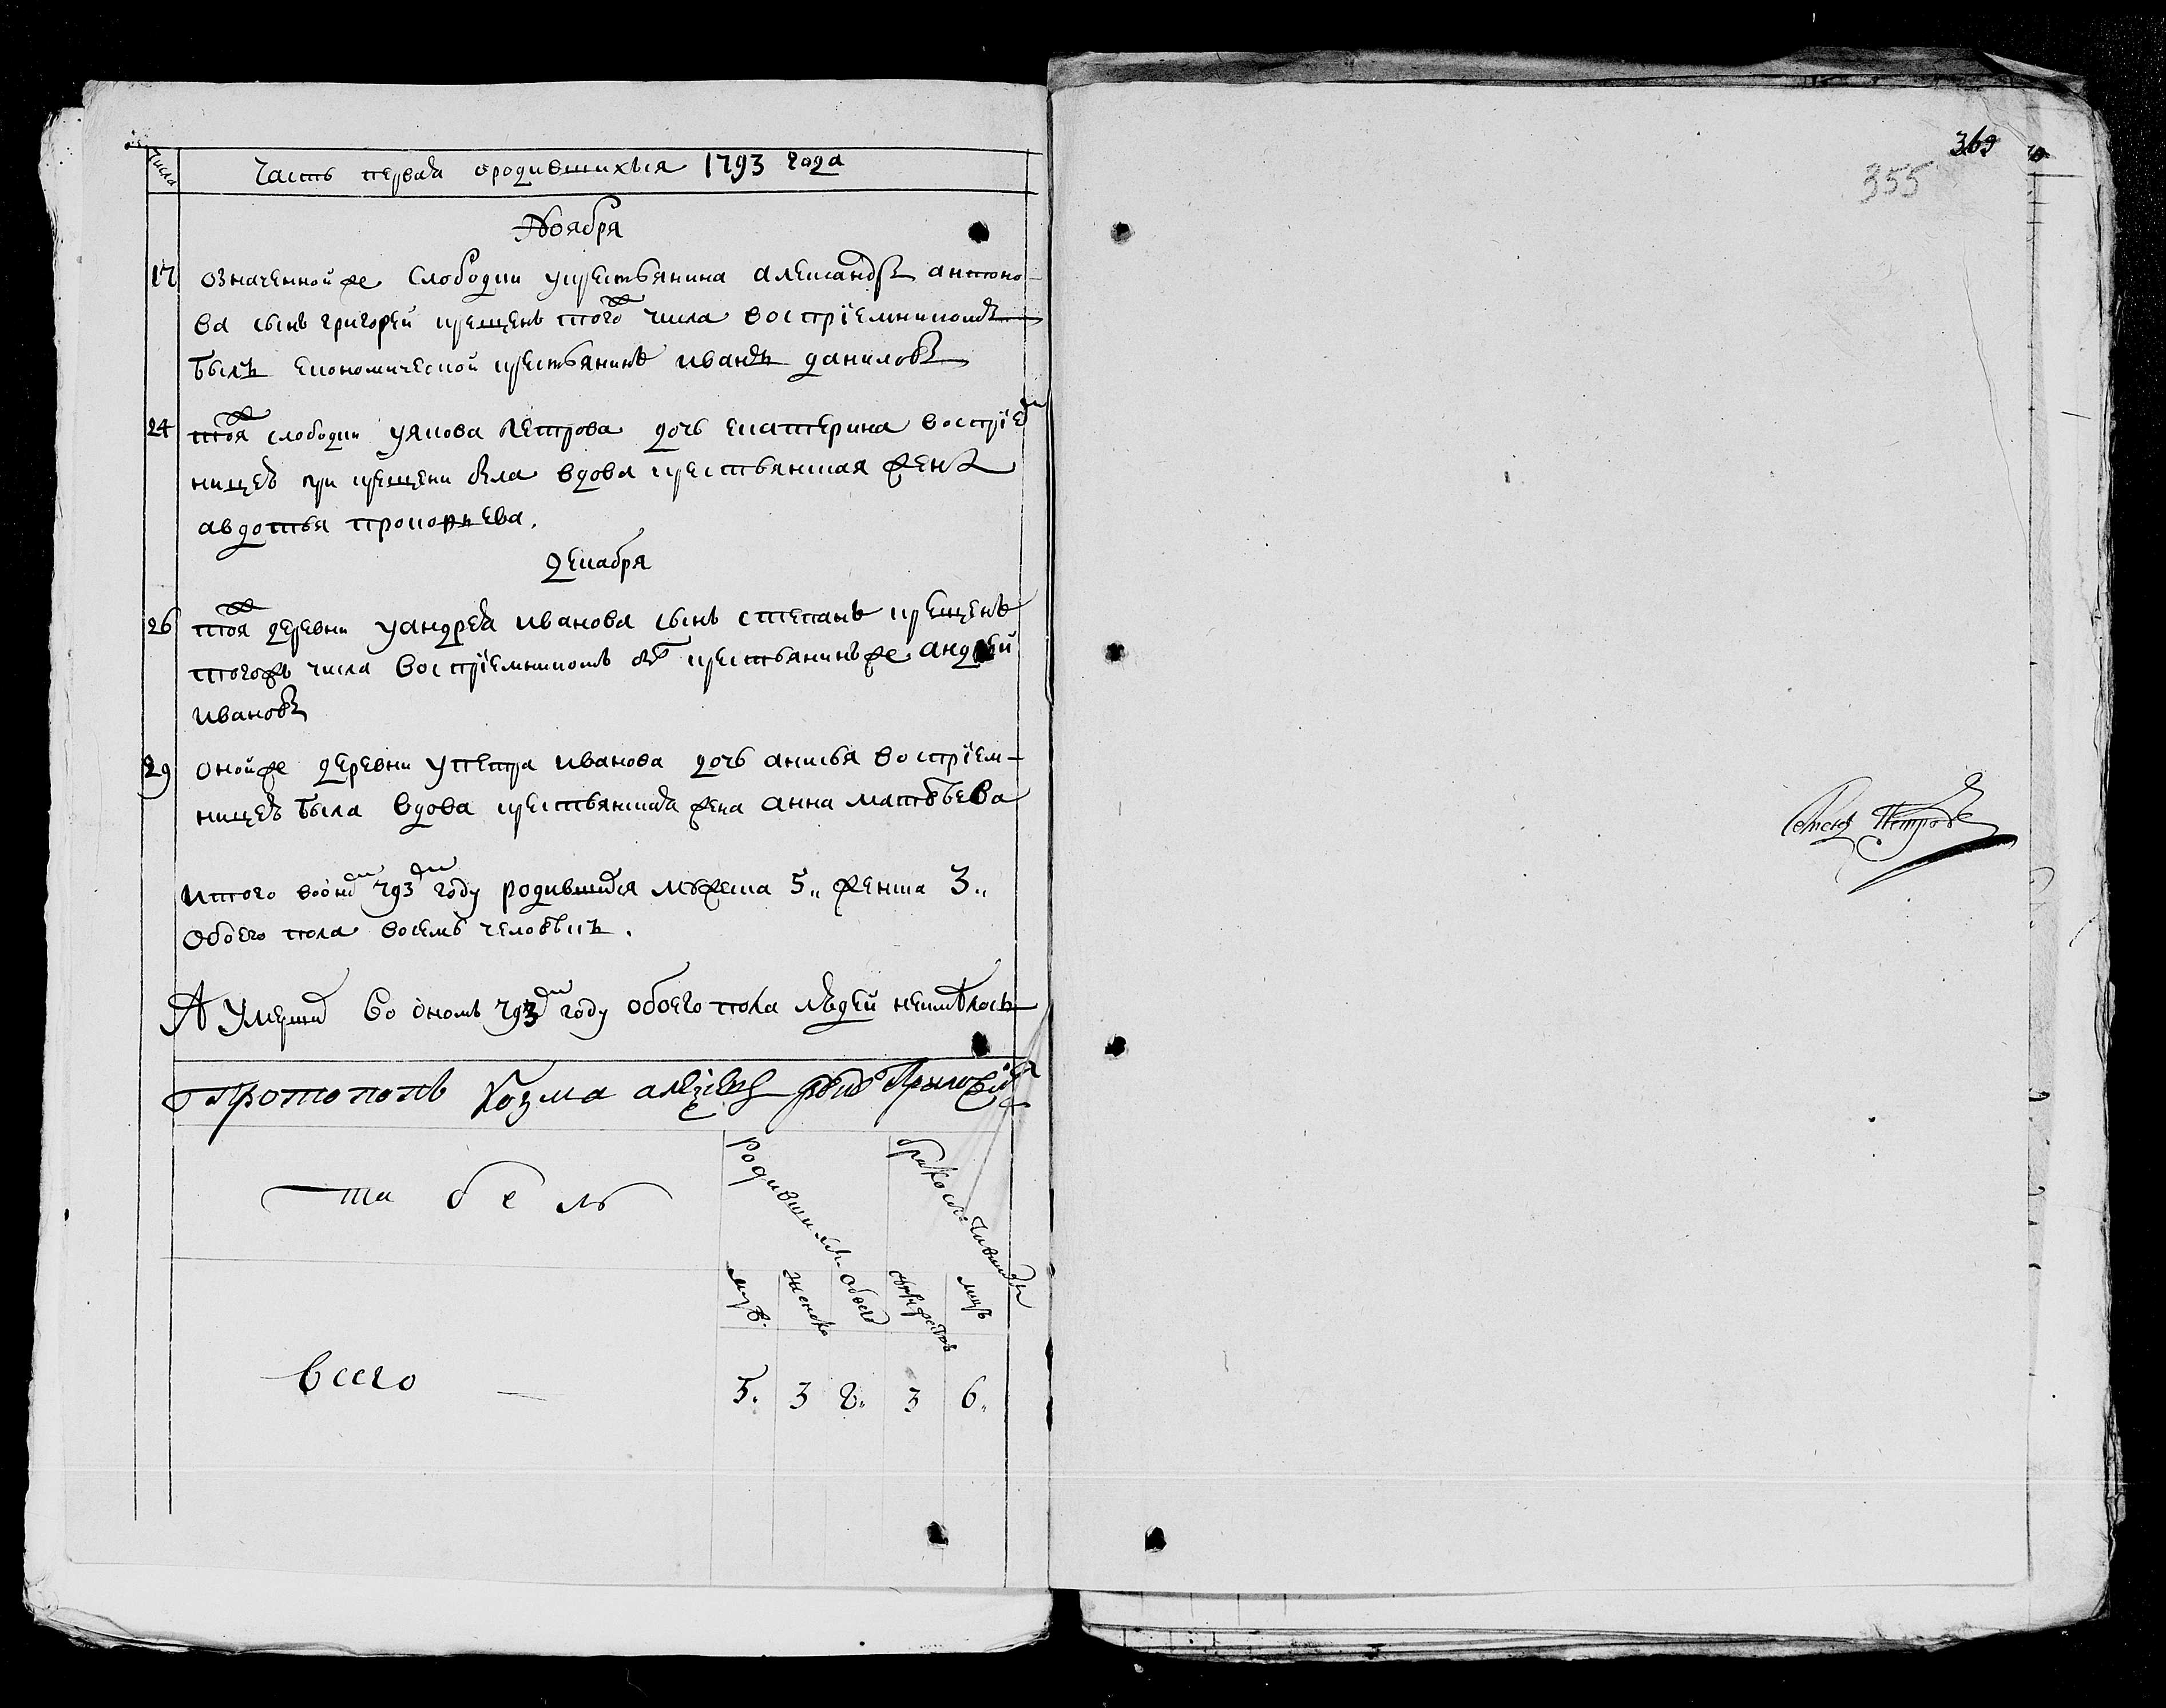 числа
Часть первая о родившихъся 1793 года
Ноября
17 означеннойже слободки укрестьянина александра антоно-
ва сынъ григорей крещенъ тогожъ числа восприемникомъ
былъ економической крестьянинъ иванъ даниловъ
24 тояжъ слободки уякова петрова дочь екатерина восприем
ницеъ при крещени была вдова крестьянская жена
авдотья прокопьева.
Декабря
26 тояжъ деревни уандрея иванова сынъ степанъ крещенъ
тогожъ числа восприемникомъ былъ крестьянинъже андрей
ивановъ
29 онойже деревни упетра иванова дочь анисья восприем-
ницеъ была вдова крестьянская жена анна матвѣева
итого воономъ 793м году родившихся мужеска 5„ женска 3„
обоего пола восемь человѣкъ.
А умершихъ во ономъ 793м году обоего пола людей неимѣлось
протопопъ Козма алеѯіевъ
та бель
родившихся
бракосочетавшихся
муж. женска обоего лицъ
всего — 5. 3 8„ 3 6„
369
355
Петровъ